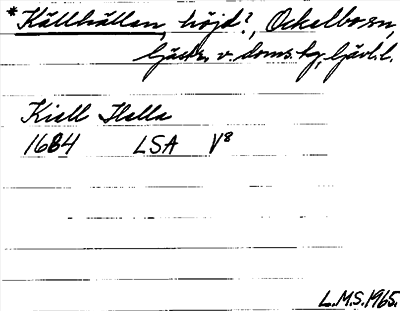 *Källhällan, höjd?, Ockelbo sn,
Gästr. v. doms. hg, Gävl. l.
Kiell Hella
1684 LSA V8
L.M.S. 1965.